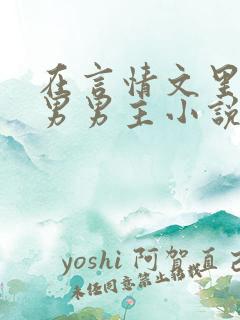 在言情文里
男男主小说
yoshi 阿贺直己
未经同意禁止转载